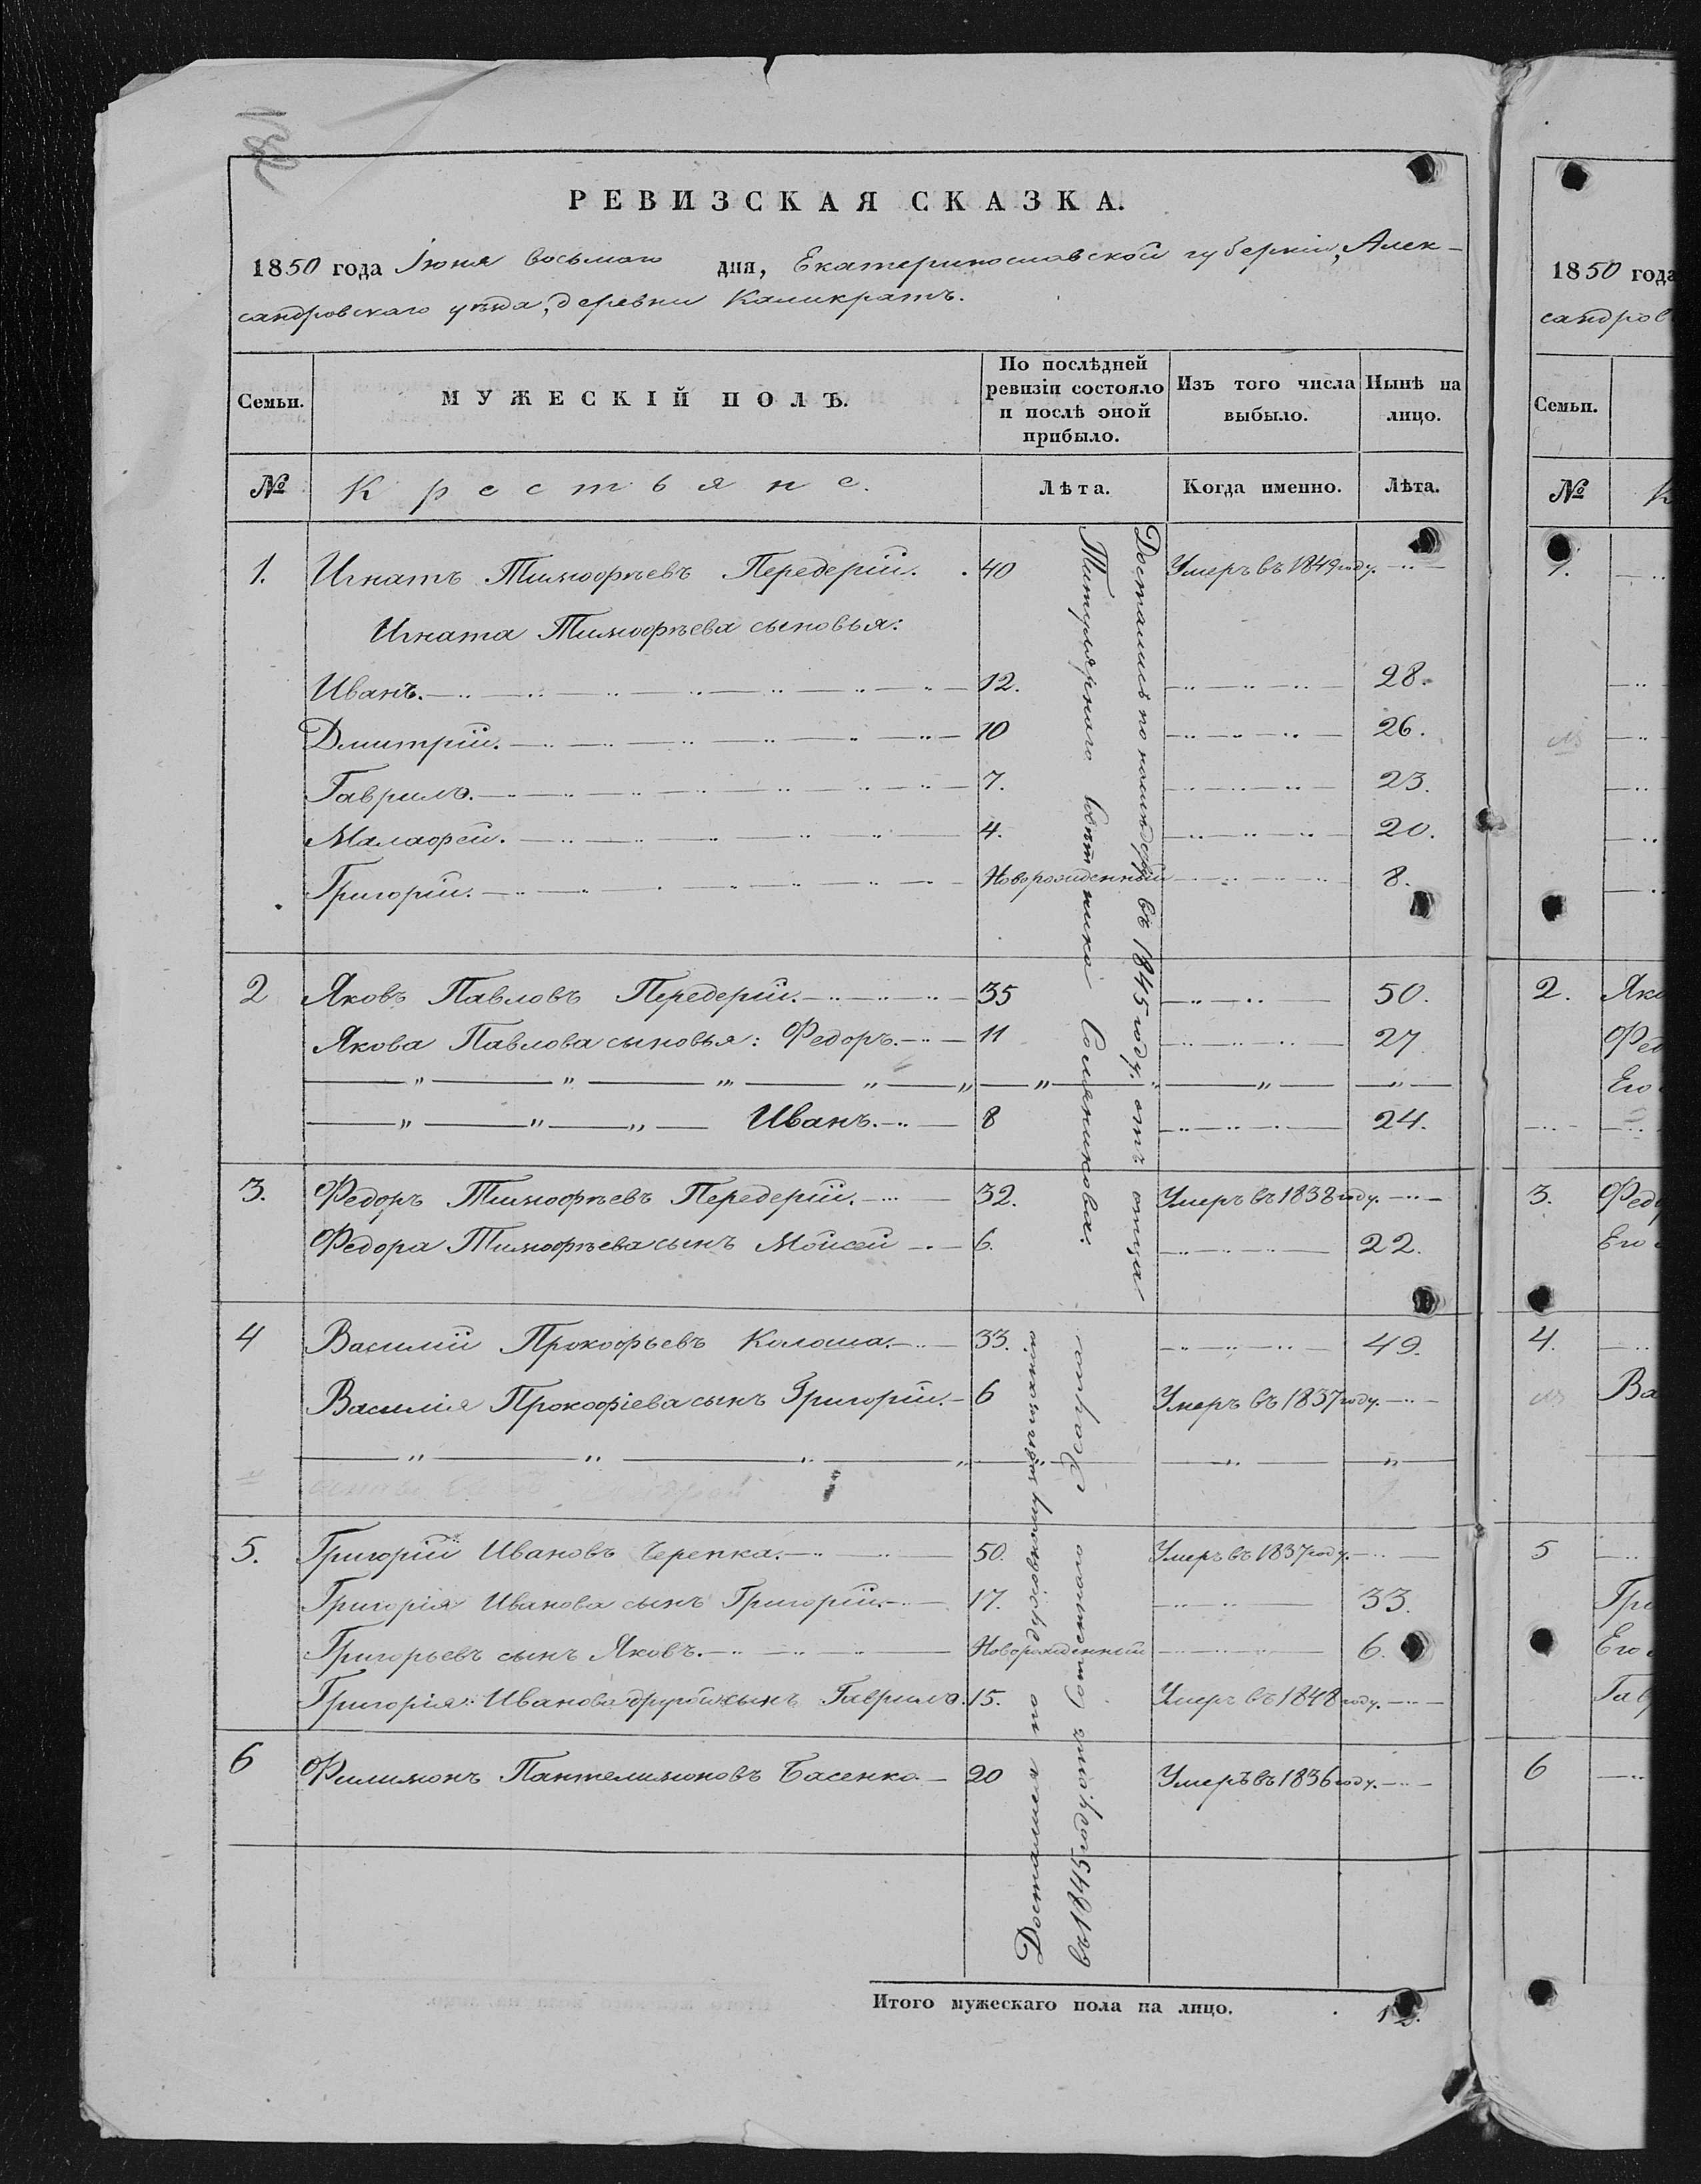 РЕВИЗСКАЯ СКАЗКА.
1850 года Іюня восьмого дня, Екатеринославской губерніи, Алек-
сандровскаго уѣзда, деревни Каликратъ.
Семьи.
МУЖЕСКІЙ ПОЛЪ.
По послѣдней ревизіи состояло и послѣ оной прибыло.
Изъ того числа выбыло.
Нынѣ на лицо.
№ Крестьяне. Лѣта. Когда именно. Лѣта.
1. Игнатъ Тимофѣевъ Передерій. 40 Умеръ въ 1849 году.
Игната Тимофѣева сыновья:
Иванъ. 12. 28.
Дмитрій. 10 26.
Гаврило. 7. 23.
Малафей. 4. 20.
Григорій. Новорожденный 8.
2 Яковъ Павловъ Передерій. 35 50.
Якова Павлова сыновья: Федоръ. 11 27
Иванъ. 8 24.
3. Федоръ Тимофѣевъ Передерій. 32. Умеръ въ 1838 году.
Федора Тимофѣева сынъ Мойсей 6. 22.
Достались по наслѣдству въ 1845 году, отъ отца
Титулярнаго Совѣтника Солѣникова:
4 Василій Прокофьевъ Колоша. 33. 49.
Василія Прокофіева сынъ Григорій. 6 Умеръ въ 1837 году.
5. Григорій Ивановъ Черепка. 50. Умеръ въ 1837 году.
Григорія Иванова сынъ Григорій. 17. 33.
Григорьевъ сынъ Яковъ. Новорожденный 6.
Григорія Иванова другой сынъ Гаврило. 15. Умеръ въ 1848 году.
6 Филимонъ Пантелимоновъ Басенко 20 Умеръ въ 1836 году.
Достались по
въ 1845 году, отъ
Итого мужескаго пола на лицо.
1850 года
сандров
Семьи.
№ К
1.
2. Яко
Фед
Его
3. Федо
Его
4.
Ва
5
Гри
Его
Гав
6